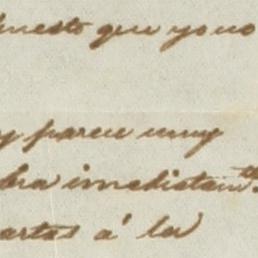 puesto que yo no
y parece muy
bra imediatamte
artas á la